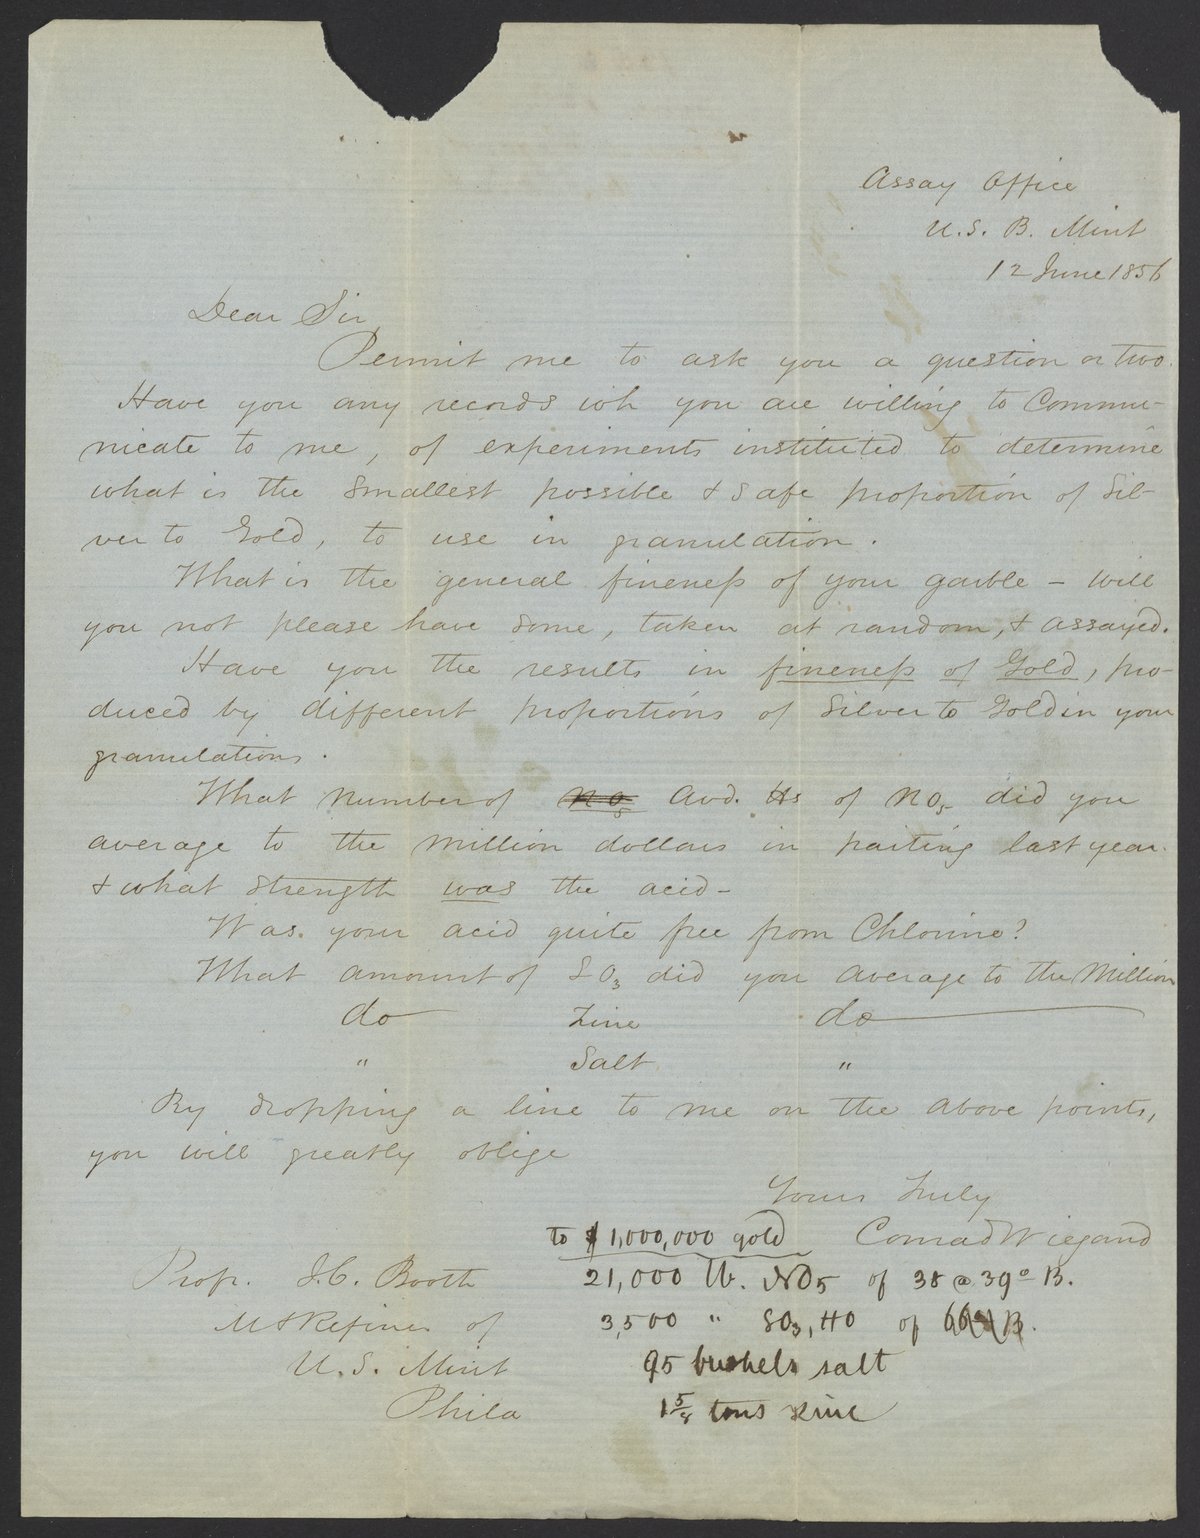 Assay Office
U.S. B. Mint
12 June 1856
Dear Sir,
Permit me to ask you a question or two.
Have you any records wh you are willing to Commu-
nicate to me, of experiments instituted to determine
what is the smallest possible & safe proportion of Sil-
ver to Gold, to use in granulation.
What is the general fineness of your garble – will
you not please have some, taken at random, & assayed.
Have you the results in fineness of Gold, pro-
duced by different proportions of Silver to Gold in your
granulations.
What number of NO5 Avd. lbs of NO5 did you
average to the Million dollars in parting last year.
& what strength was the acid –
Was your acid quite free from Chlorine?
What amount of SO3 did you average to the Million
do Zinc do
" Salt "
By dropping a line to me on the above points,
you will greatly oblige
Yours Truly
Conrad Wiegand
to $1,000,000 gold
21,000 lb. NO5 of 38 @ 39° B.
3,500 " SO3, HO of 66° B.
95 bushels salt
1 5/8 tons zinc
Prof. J.C. Booth
M & Refiner of
U.S. Mint
Phila